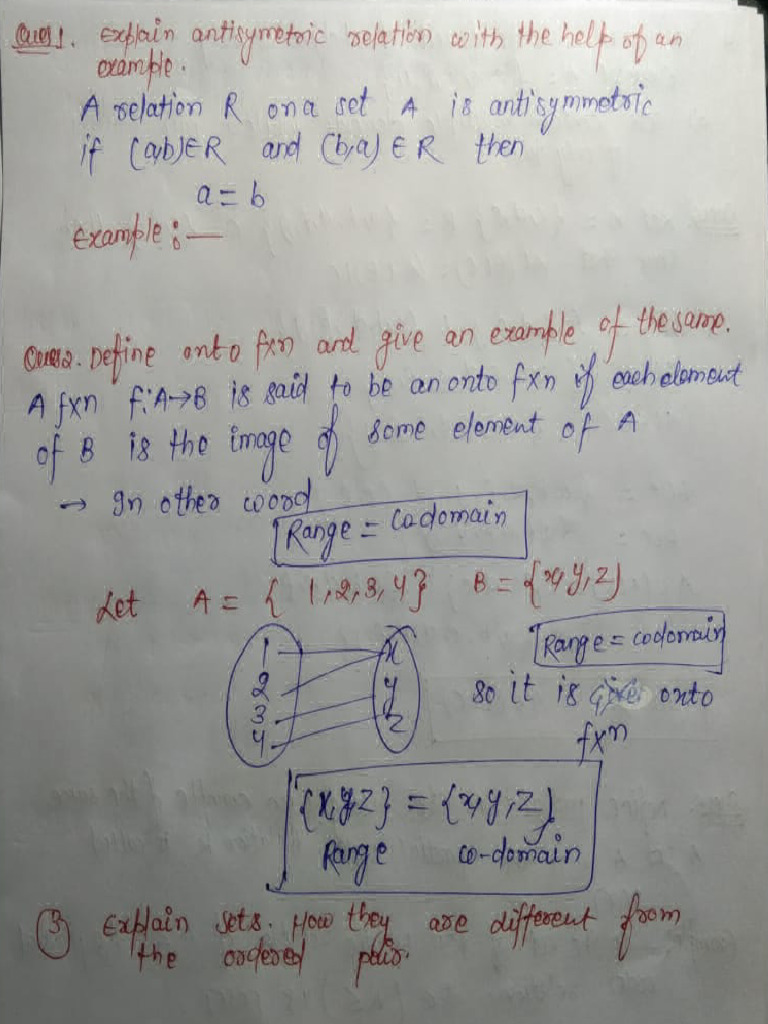 Ques 1. Explain antisymetric relation with the help of an
example.
A relation R on a set A is antisymmetric
if (a,b)∈R and (b,a) ∈ R then
a = b
Example :—
Ques 2. Define onto fxn and give an example of the same.
A fxn f:A→B is said to be an onto fxn if each element
of B is the image of some element of A
→ In other word
Range = Co-domain
Let A = { 1,2,3,4} B = {x,y,z}
1 x
2 y
3 z
4
Range = codomain
so it is onto
fxn
{x,y,z} = {x,y,z}
Range co-domain
③ Explain sets. How they are different from
the ordered pair.